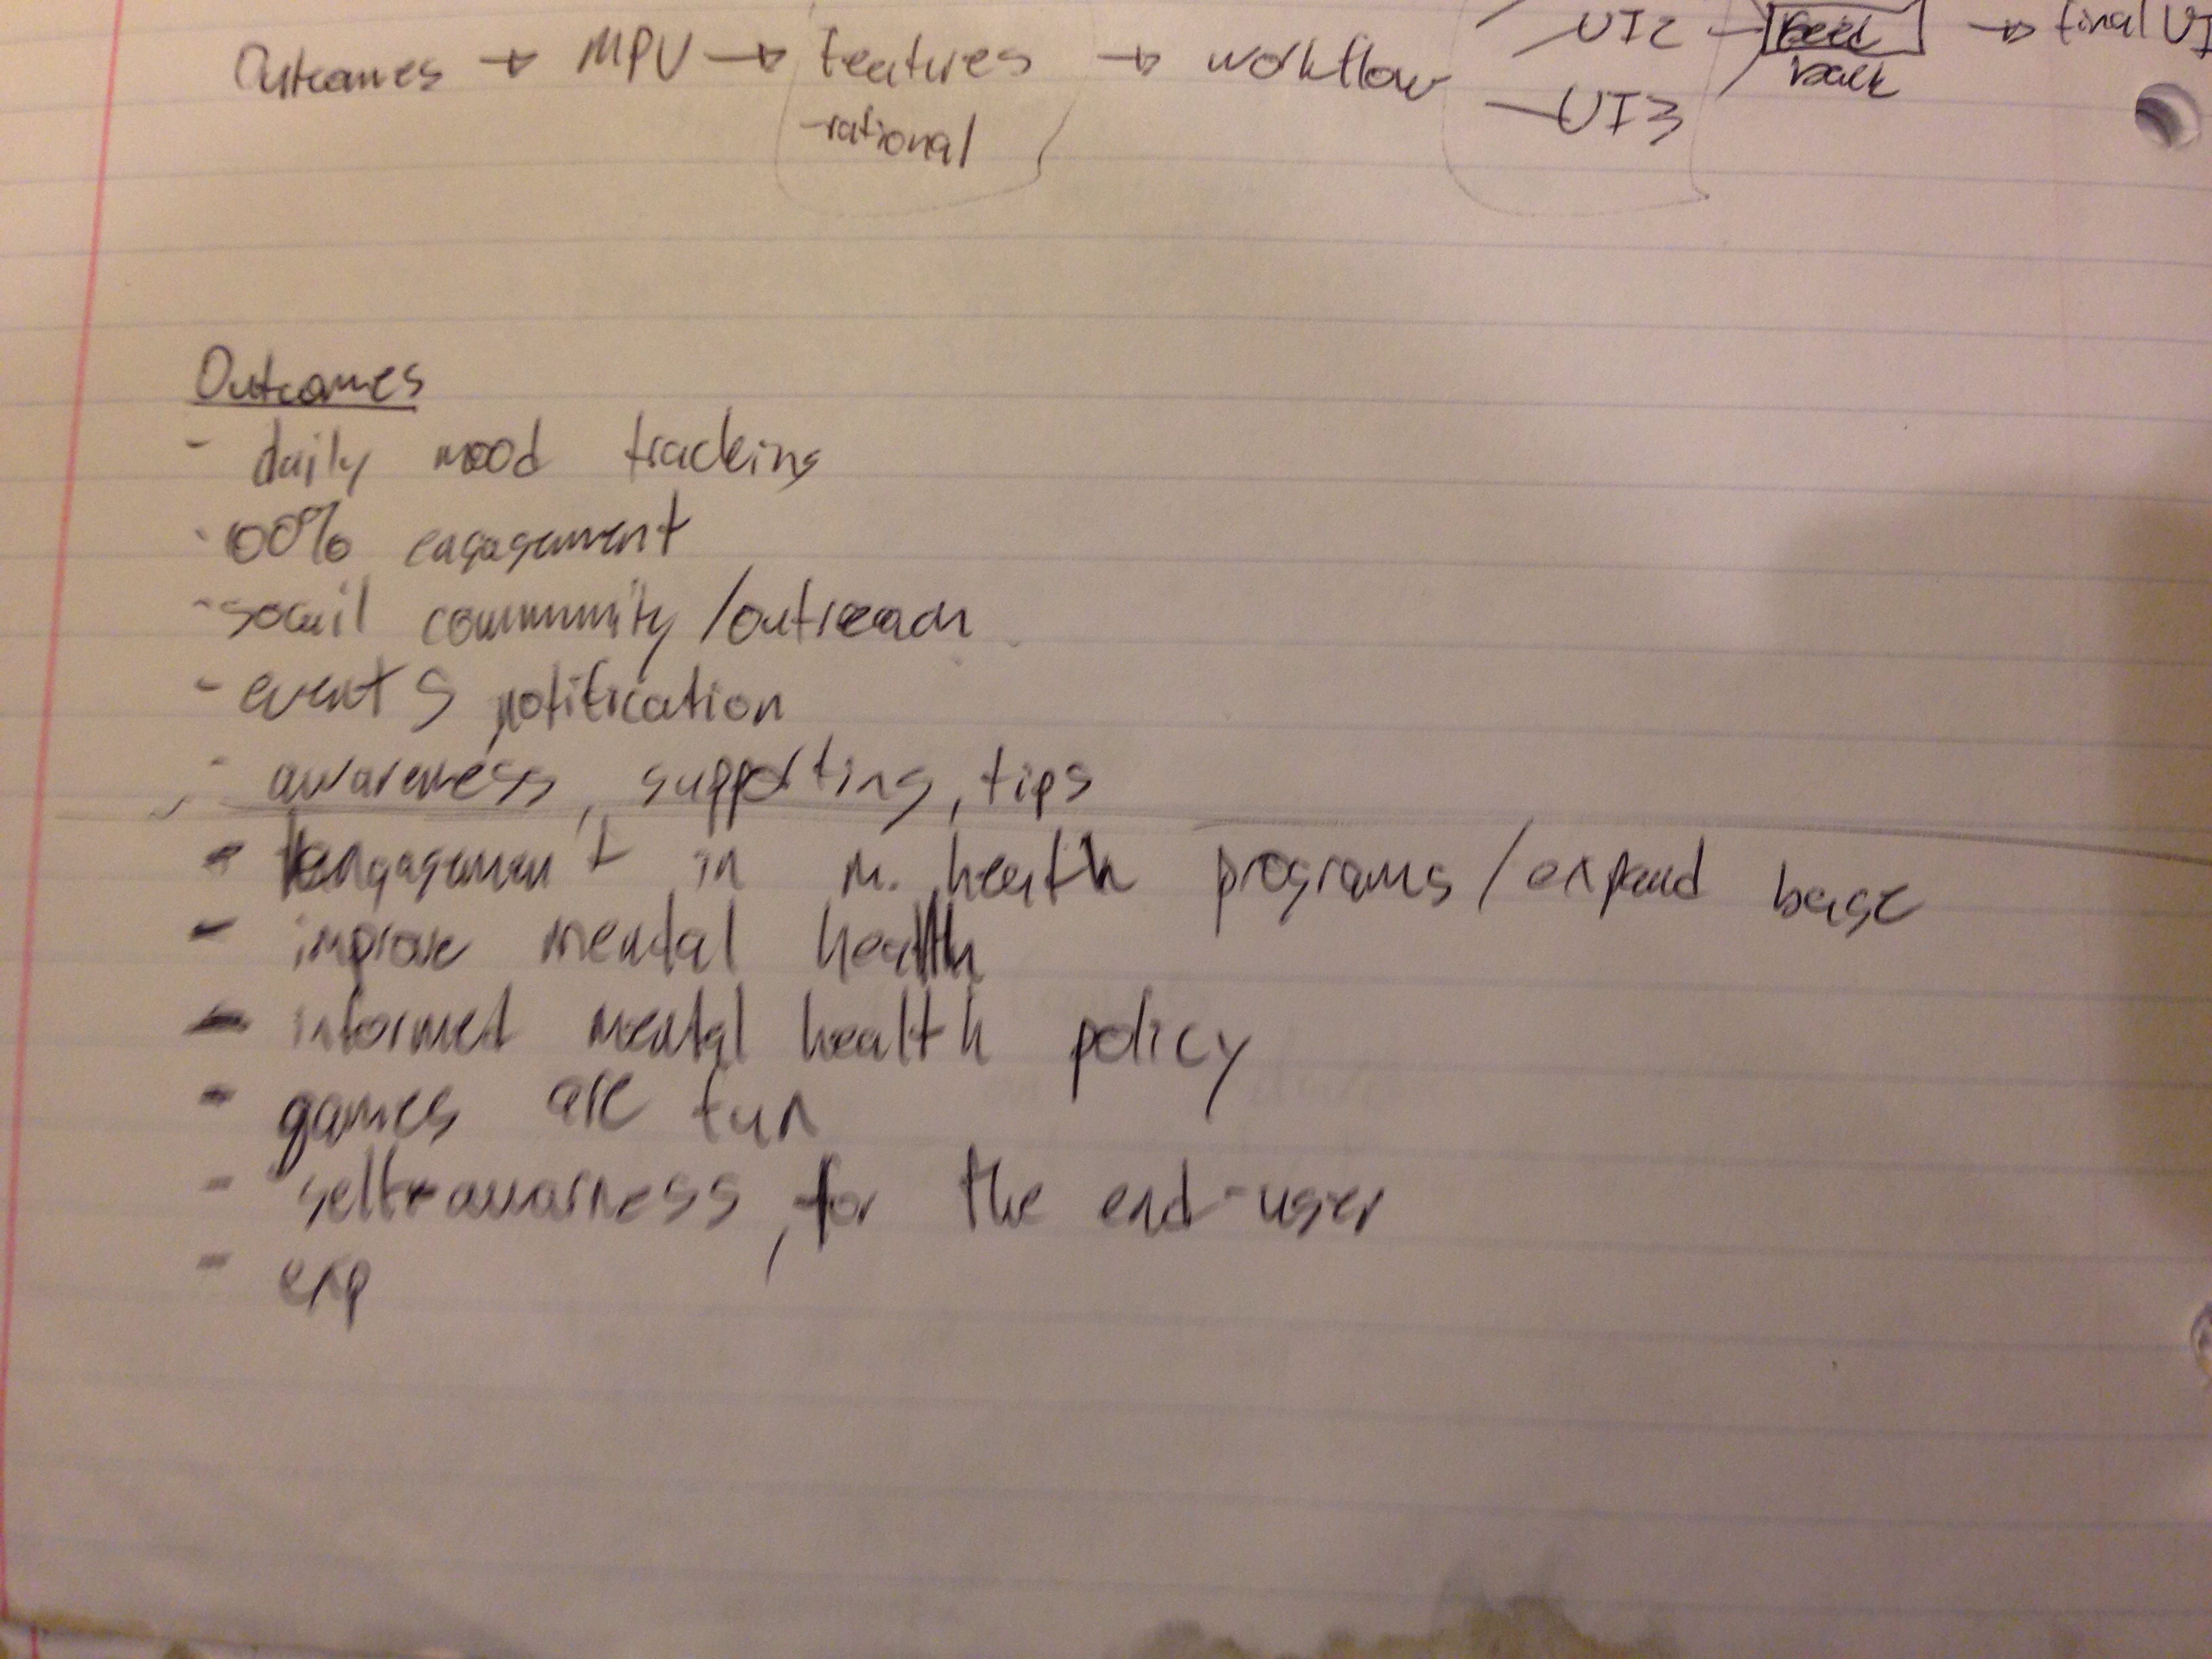 Outcomes → MPV → features → workflow — UI2 → feed → final UI
- rational — UI3 back
Outcomes
- daily mood tracking
- 100% engagement
- socail community/outreach
- events notification
- awareness, supporting, tips
- engagement in m. health programs/expand base
- improve mental health
- informed mental health policy
- games are fun
- self-awarness, for the end-user
- exp